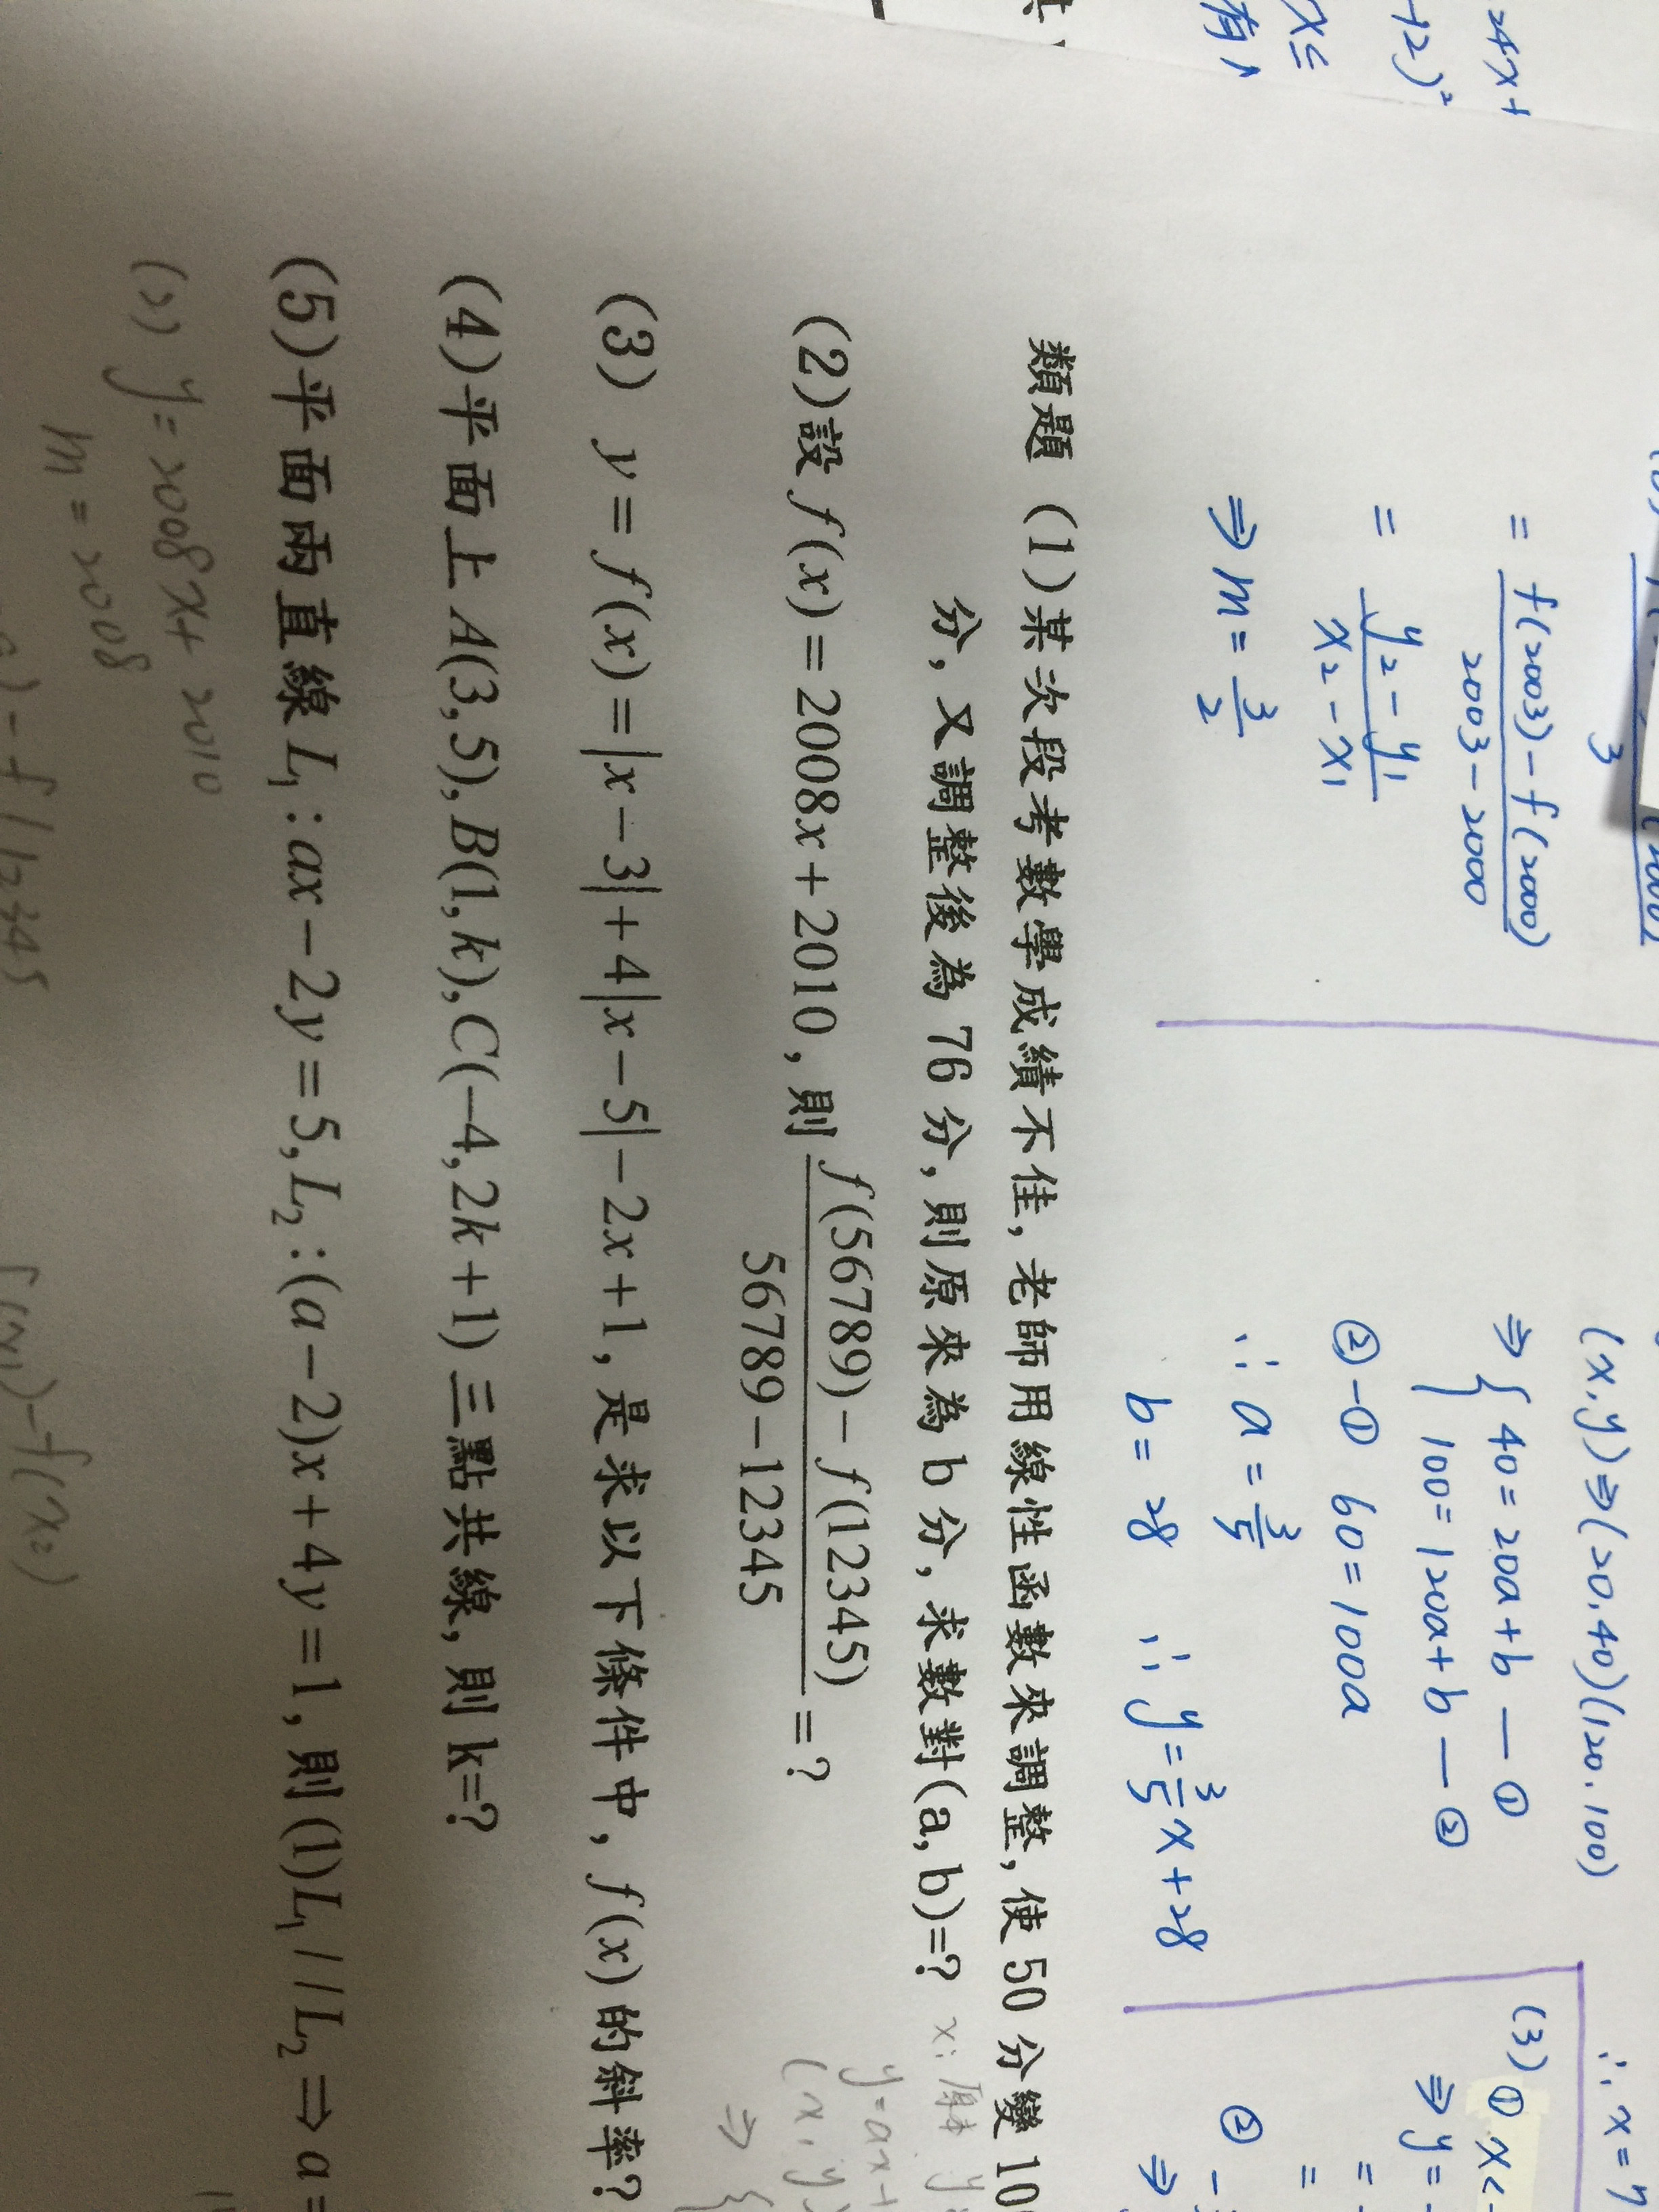 24x+
+2)²
x≤
有
= f(2003)-f(2000) / 2003-2000
= y₂-y₁ / x₂-x₁
⇒ m = 3/2
(x,y)⇒(20,40)(120,100)
⇒ { 40=20a+b —①
100=120a+b —②
②-① 60=100a
∴ a = 3/5
b = 28 ∴ y = 3/5 x + 28
∴ x =
(3) ① x<
⇒ y =
=
②
=
⇒
類題 (1)某次段考數學成績不佳,老師用線性函數來調整,使 50 分變 10
分,又調整後為 76 分,則原來為 b 分,求數對(a,b)=? x:原 y:
y=ax+
(x,y)
⇒ {
(2)設 f(x)=2008x+2010,則 f(56789)-f(12345) / 56789-12345 =?
(3) y=f(x)=|x-3|+4|x-5|-2x+1,是求以下條件中,f(x)的斜率?
(4)平面上 A(3,5),B(1,k),C(-4,2k+1)三點共線,則 k=?
(5)平面兩直線 L₁:ax-2y=5,L₂:(a-2)x+4y=1,則(1)L₁//L₂⇒a=
(2) y=2008x+2010
m=2008
)-f(12345
)-f(x₂)